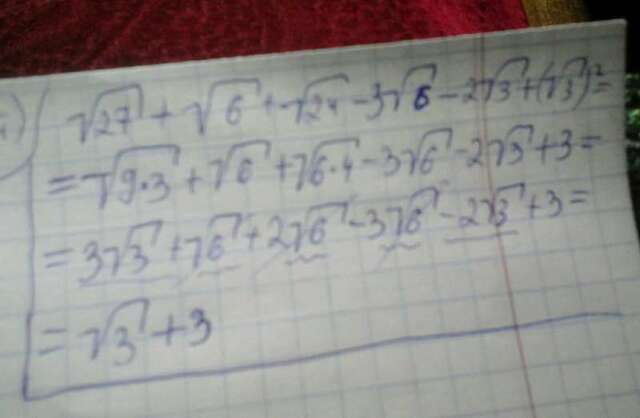 √27 + √6 + √24 - 3√6 - 2√3 + (√3)² =
= √9·3 + √6 + √6·4 - 3√6 - 2√3 + 3 =
= 3√3 + √6 + 2√6 - 3√6 - 2√3 + 3 =
= √3 + 3